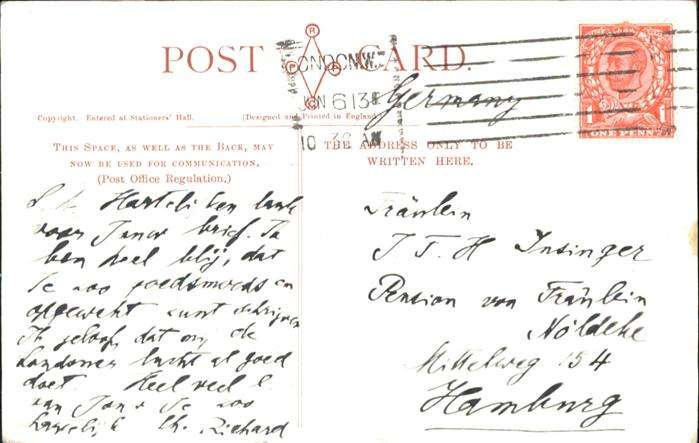 POST CARD.
R
P P
LONDON.N.W.
JUN 6 13
10 30 AM
Germany
ONE PENNY
Copyright. Entered at Stationers' Hall.
(Designed and Printed in England)
THIS SPACE, AS WELL AS THE BACK, MAY
NOW BE USED FOR COMMUNICATION.
(Post Office Regulation.)
THE ADDRESS ONLY TO BE
WRITTEN HERE.
L. Hartelijken dank
voor Jouw brief. Ik
ben heel blij, dat
Je zoo goedsmoeds en
opgewekt kunt schrijven
Ik geloof, dat mij de
Londonse lucht al goed
doet. Heel veel
van Jou
Richard
Fräulein
J. T. H Insinger
Pension von Fräulein
Nöldeke
Mittelweg 154
Hamburg